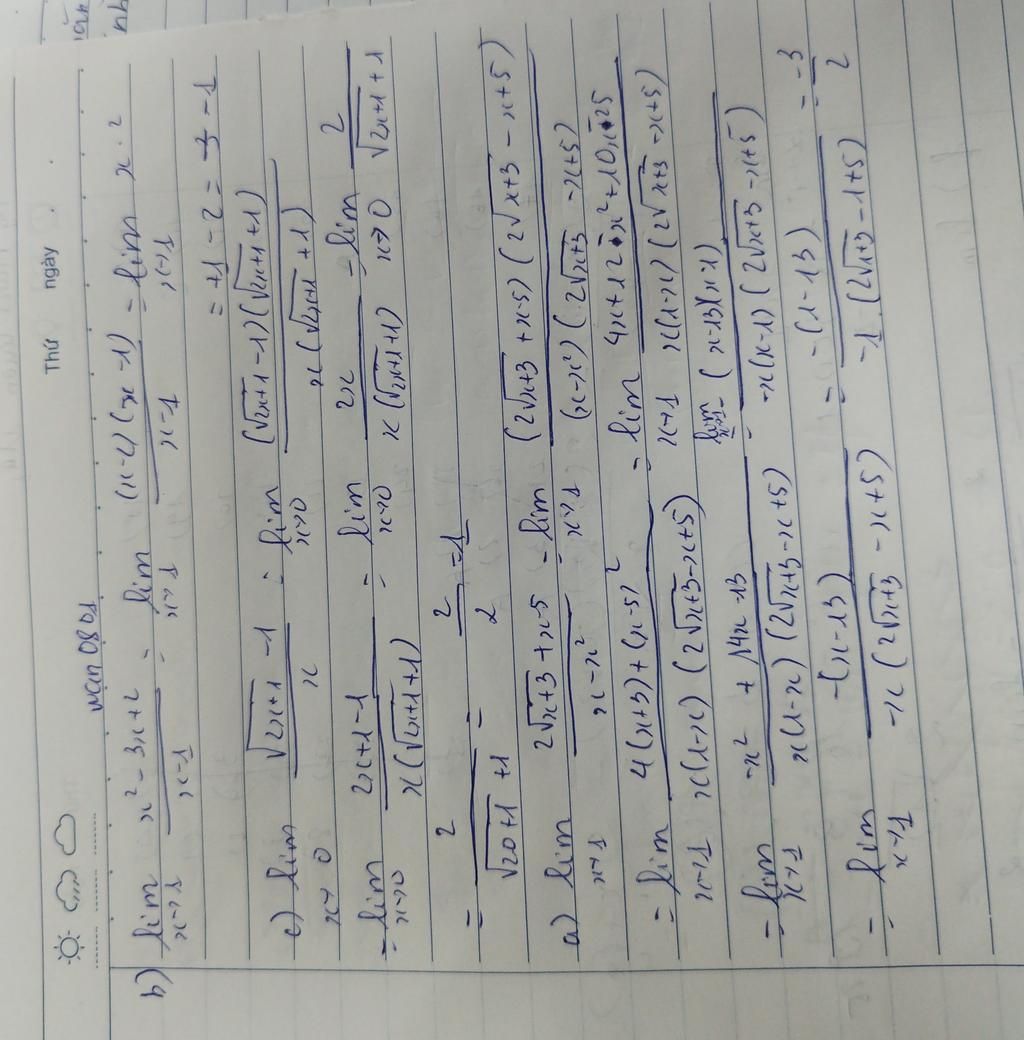 Thứ ngày
wan 08 01
b) lim x→1 (x² - 3x + 2)/(x-1) = lim x→1 (x-2)(x-1)/(x-1) = lim x→1 x · 2
= +1 - 2 = -1
c) lim x→0 (√(2x+1) - 1)/x = lim x→0 (√(2x+1) - 1)(√(2x+1) + 1)/(x(√(2x+1) + 1))
= lim x→0 (2x+1-1)/(x(√(2x+1)+1)) = lim x→0 2x/(x(√(2x+1)+1)) = lim x→0 2/(√(2x+1)+1)
= 2/(√(20+1)+1) = 2/2 = 1
a) lim x→1 (2√(x+3) + x-5)/(x-x²) = lim x→1 (2√(x+3) + x-5)(2√(x+3) - x+5)/((x-x²)(2√(x+3) - x+5))
= lim x→1 (4(x+3)+(x-5)²)/(x(1-x)(2√(x+3)-x+5)) = lim x→1 (4x+12-x²+10x-25)/(x(1-x)(2√(x+3)-x+5))
= lim x→1 (-x² + 14x - 13)/(x(1-x)(2√(x+3)-x+5)) = lim x→1 -(x-13)(x-1)/(-x(x-1)(2√(x+3)-x+5))
= lim x→1 -(x-13)/(-x(2√(x+3)-x+5)) = -(1-13)/(-1(2√(1+3)-1+5)) = -3/2